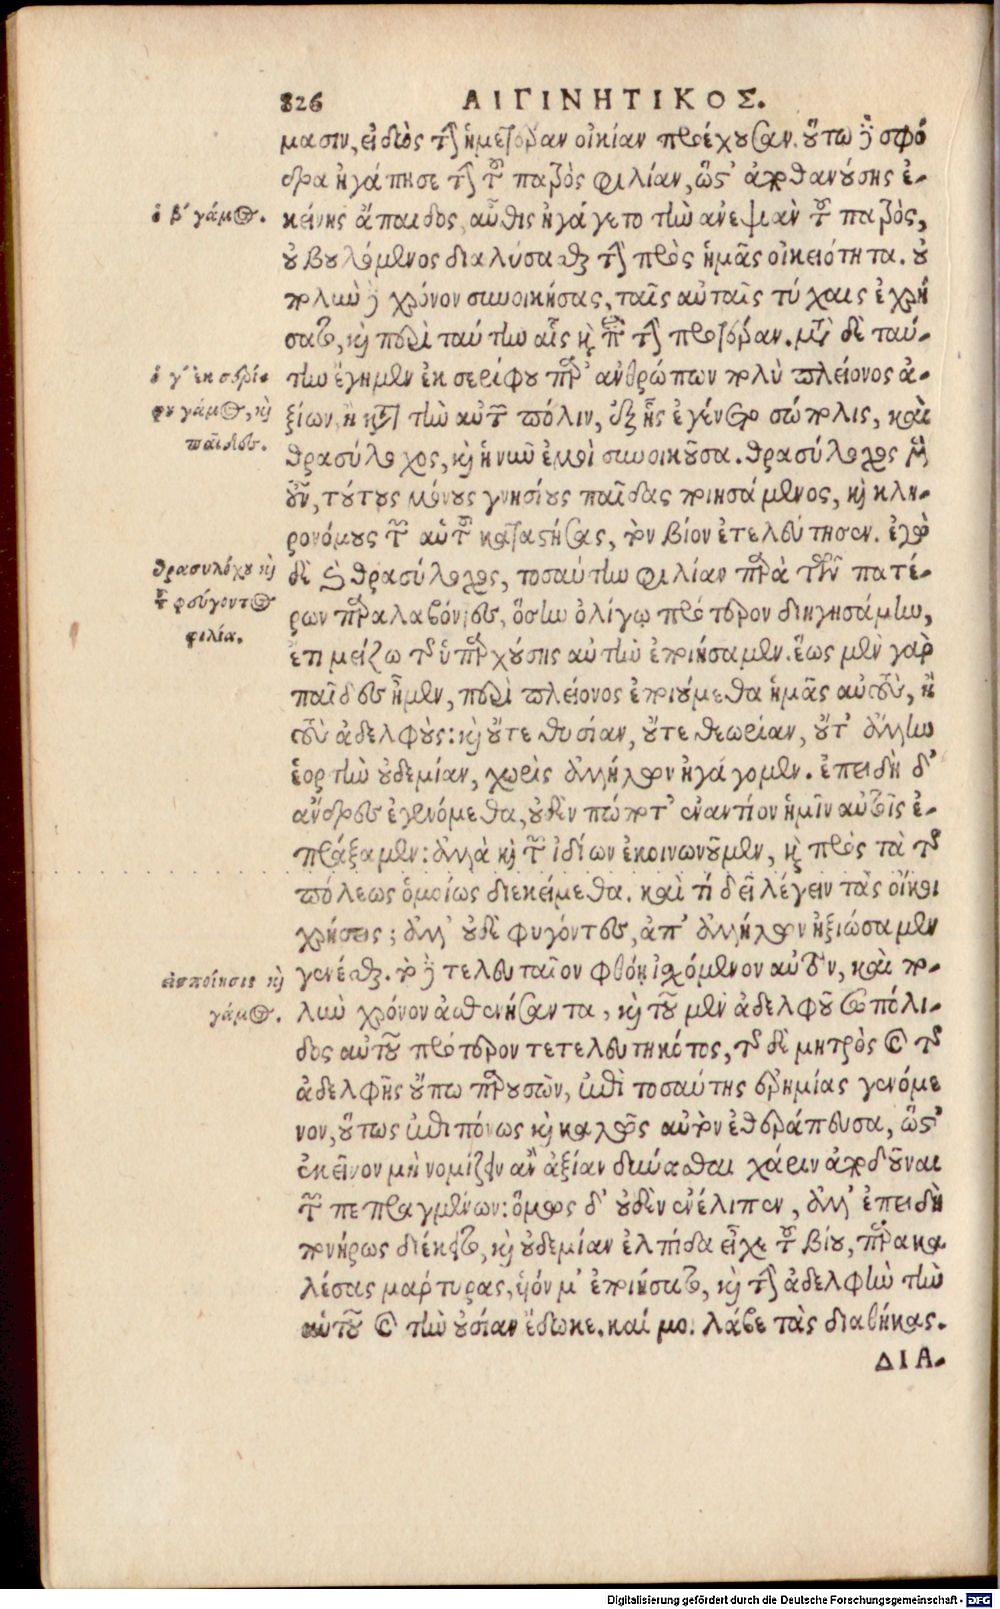 826 ΑΙΓΙΝΗΤΙΚΟΣ.
μασιν, εἰδὼς τὴν ἡμετέραν οἰκίαν προέχουσαν. οὕτω δὲ σφό
δρα ἠγάπησε τὴν τοῦ πατρὸς φιλίαν, ὥστ' ἀποθανούσης ἐ-
ὁ β' γάμος.
κείνης ἄπαιδος, αὖθις ἠγάγετο τὴν ἀνεψιὰν τοῦ πατρὸς,
οὐ βουλόμενος διαλύσασθαι τὴν πρὸς ἡμᾶς οἰκειότητα. οὐ
πολὺν δὲ χρόνον συνοικήσας, ταῖς αὐταῖς τύχαις ἐχρή
σατο, καὶ περὶ ταύτην αἷς καὶ ἐπὶ τὴν προτέραν. μετὰ δὲ ταύ-
ὁ γ' ἐκ σερί-
φου γάμος, καὶ
παῖδες.
την ἔγημεν ἐκ σερίφου παρ' ἀνθρώπων πολὺ πλείονος ἀ-
ξίων, ἢ κατὰ τὴν αὐτῶν πόλιν, ἐξ ἧς ἐγένετο σώπολις, καὶ
θρασύλοχος, καὶ ἡ νῦν ἐμοὶ συνοικοῦσα. θρασύλοχος μὲν
οὖν, τούτους μόνους γνησίους παῖδας ποιησάμενος, καὶ κλη-
ρονόμους τῶν αὑτοῦ καταστήσας, τὸν βίον ἐτελεύτησεν. ἐγὼ
θρασυλόχου καὶ
τοῦ φεύγοντος
φιλία.
δὲ καὶ θρασύλοχος, τοσαύτην φιλίαν παρὰ τῶν πατέ-
ρων παραλαβόντες, ὅσην ὀλίγῳ πρότερον διηγησάμην,
ἔτι μείζω τῆς ὑπαρχούσης αὐτὴν ἐποιήσαμεν. ἕως μὲν γὰρ
παῖδες ἦμεν, περὶ πλείονος ἐποιούμεθα ἡμᾶς αὐτοὺς, ἢ
τοὺς ἀδελφούς: καὶ οὔτε θυσίαν, οὔτε θεωρίαν, οὔτ' ἄλλην
ἑορτὴν οὐδεμίαν, χωρὶς ἀλλήλων ἠγάγομεν. ἐπειδὴ δ'
ἄνδρες ἐγενόμεθα, οὐδὲν πώποτ' ἐναντίον ἡμῖν αὐτοῖς ἐ-
πράξαμεν: ἀλλὰ καὶ τῶν ἰδίων ἐκοινωνοῦμεν, καὶ πρὸς τὰ τῆς
πόλεως ὁμοίως διεκείμεθα. καὶ τί δεῖ λέγειν τὰς οἴκοι
χρήσεις; ἀλλ' οὐδὲ φυγόντες, ἀπ' ἀλλήλων ἠξιώσαμεν
εἰσποίησις καὶ
γάμος.
γενέσθαι. τὸ δὲ τελευταῖον φθόῃ ἰσχόμενον αὐτὸν, καὶ πο-
λὺν χρόνον ἀσθενήσαντα, καὶ τοῦ μὲν ἀδελφοῦ σωπόλι-
δος αὐτοῦ πρότερον τετελευτηκότος, τῆς δὲ μητρὸς καὶ τῆς
ἀδελφῆς οὔπω παρουσῶν, ἐπὶ τοσαύτης ἐρημίας γενόμε
νον, οὕτως ἐπιπόνως καὶ καλῶς αὐτὸν ἐθεράπευσα, ὥστ'
ἐκεῖνον μὴ νομίζειν ἂν ἀξίαν δύνασθαι χάριν ἀποδοῦναι
τῶν πεπραγμένων: ὅμως δ' οὐδὲν ἐνέλιπεν, ἀλλ' ἐπειδὴ
πονήρως διέκειτο, καὶ οὐδεμίαν ἐλπίδα εἶχε τοῦ βίου, παρακα
λέσας μάρτυρας, υἱόν μ' ἐποιήσατο, καὶ τὴν ἀδελφὴν τὴν
αὑτοῦ καὶ τὴν οὐσίαν ἔδωκε. καί μοι λάβε τὰς διαθήκας.
ΔΙΑ-
Digitalisierung gefördert durch die Deutsche Forschungsgemeinschaft - DFG